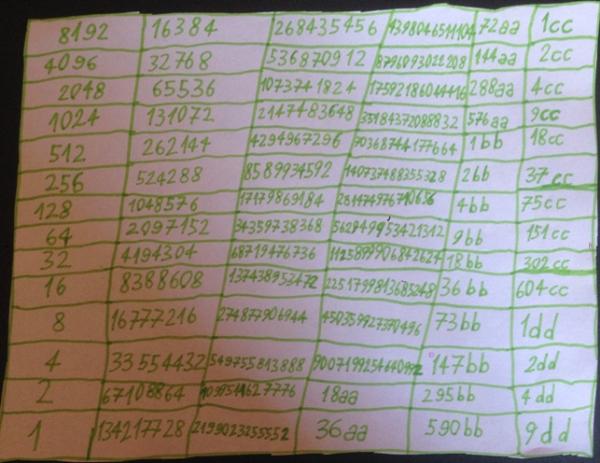 8192 16384 268435456 4398046511104 72aa 1cc
4096 32768 536870912 8796093022208 144aa 2cc
2048 65536 1073741824 17592186044416 288aa 4cc
1024 131072 2147483648 35184372088832 576aa 9cc
512 262144 4294967296 70368744177664 1bb 18cc
256 524288 8589934592 140737488355328 2bb 37cc
128 1048576 17179869184 4bb 75cc
64 2097152 34359738368 562949953421312 9bb 151cc
32 4194304 68719476736 1125899906842624 18bb 302cc
16 8388608 137438953472 2251799813685248 36bb 604cc
8 16777216 274877906944 73bb 1dd
4 33554432 549755813888 147bb 2dd
2 67108864 18aa 295bb 4dd
1 134217728 2199023255552 36aa 590bb 9dd